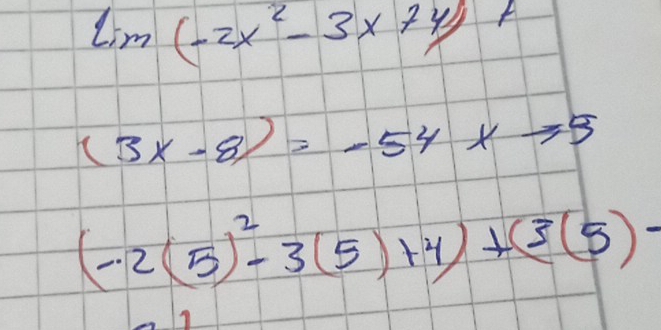 Lim (-2x² - 3x + 4) +
(3x - 8) = -54 x → 5
(-2(5)² - 3(5) + 4) + (3(5) -